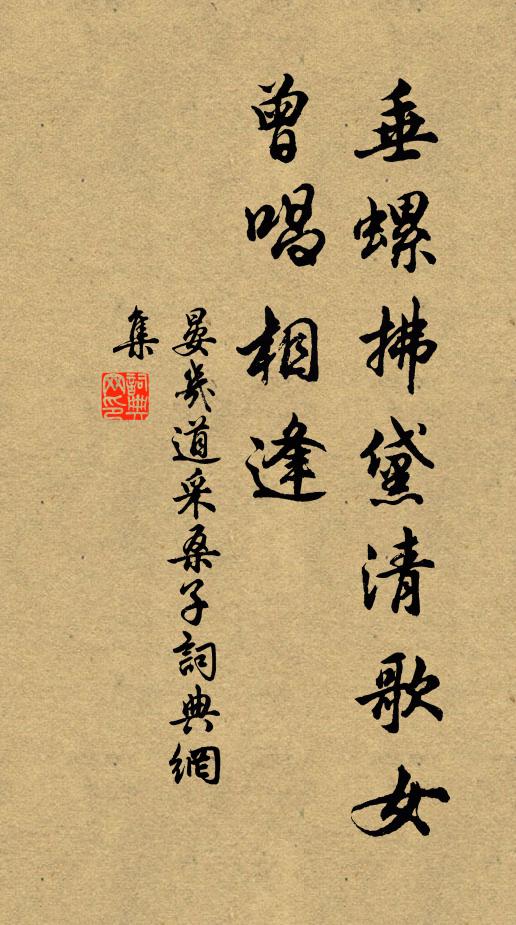 垂螺拂黛清歌女
曾唱相逢
晏幾道采桑子詞典網
集
詞典
网印